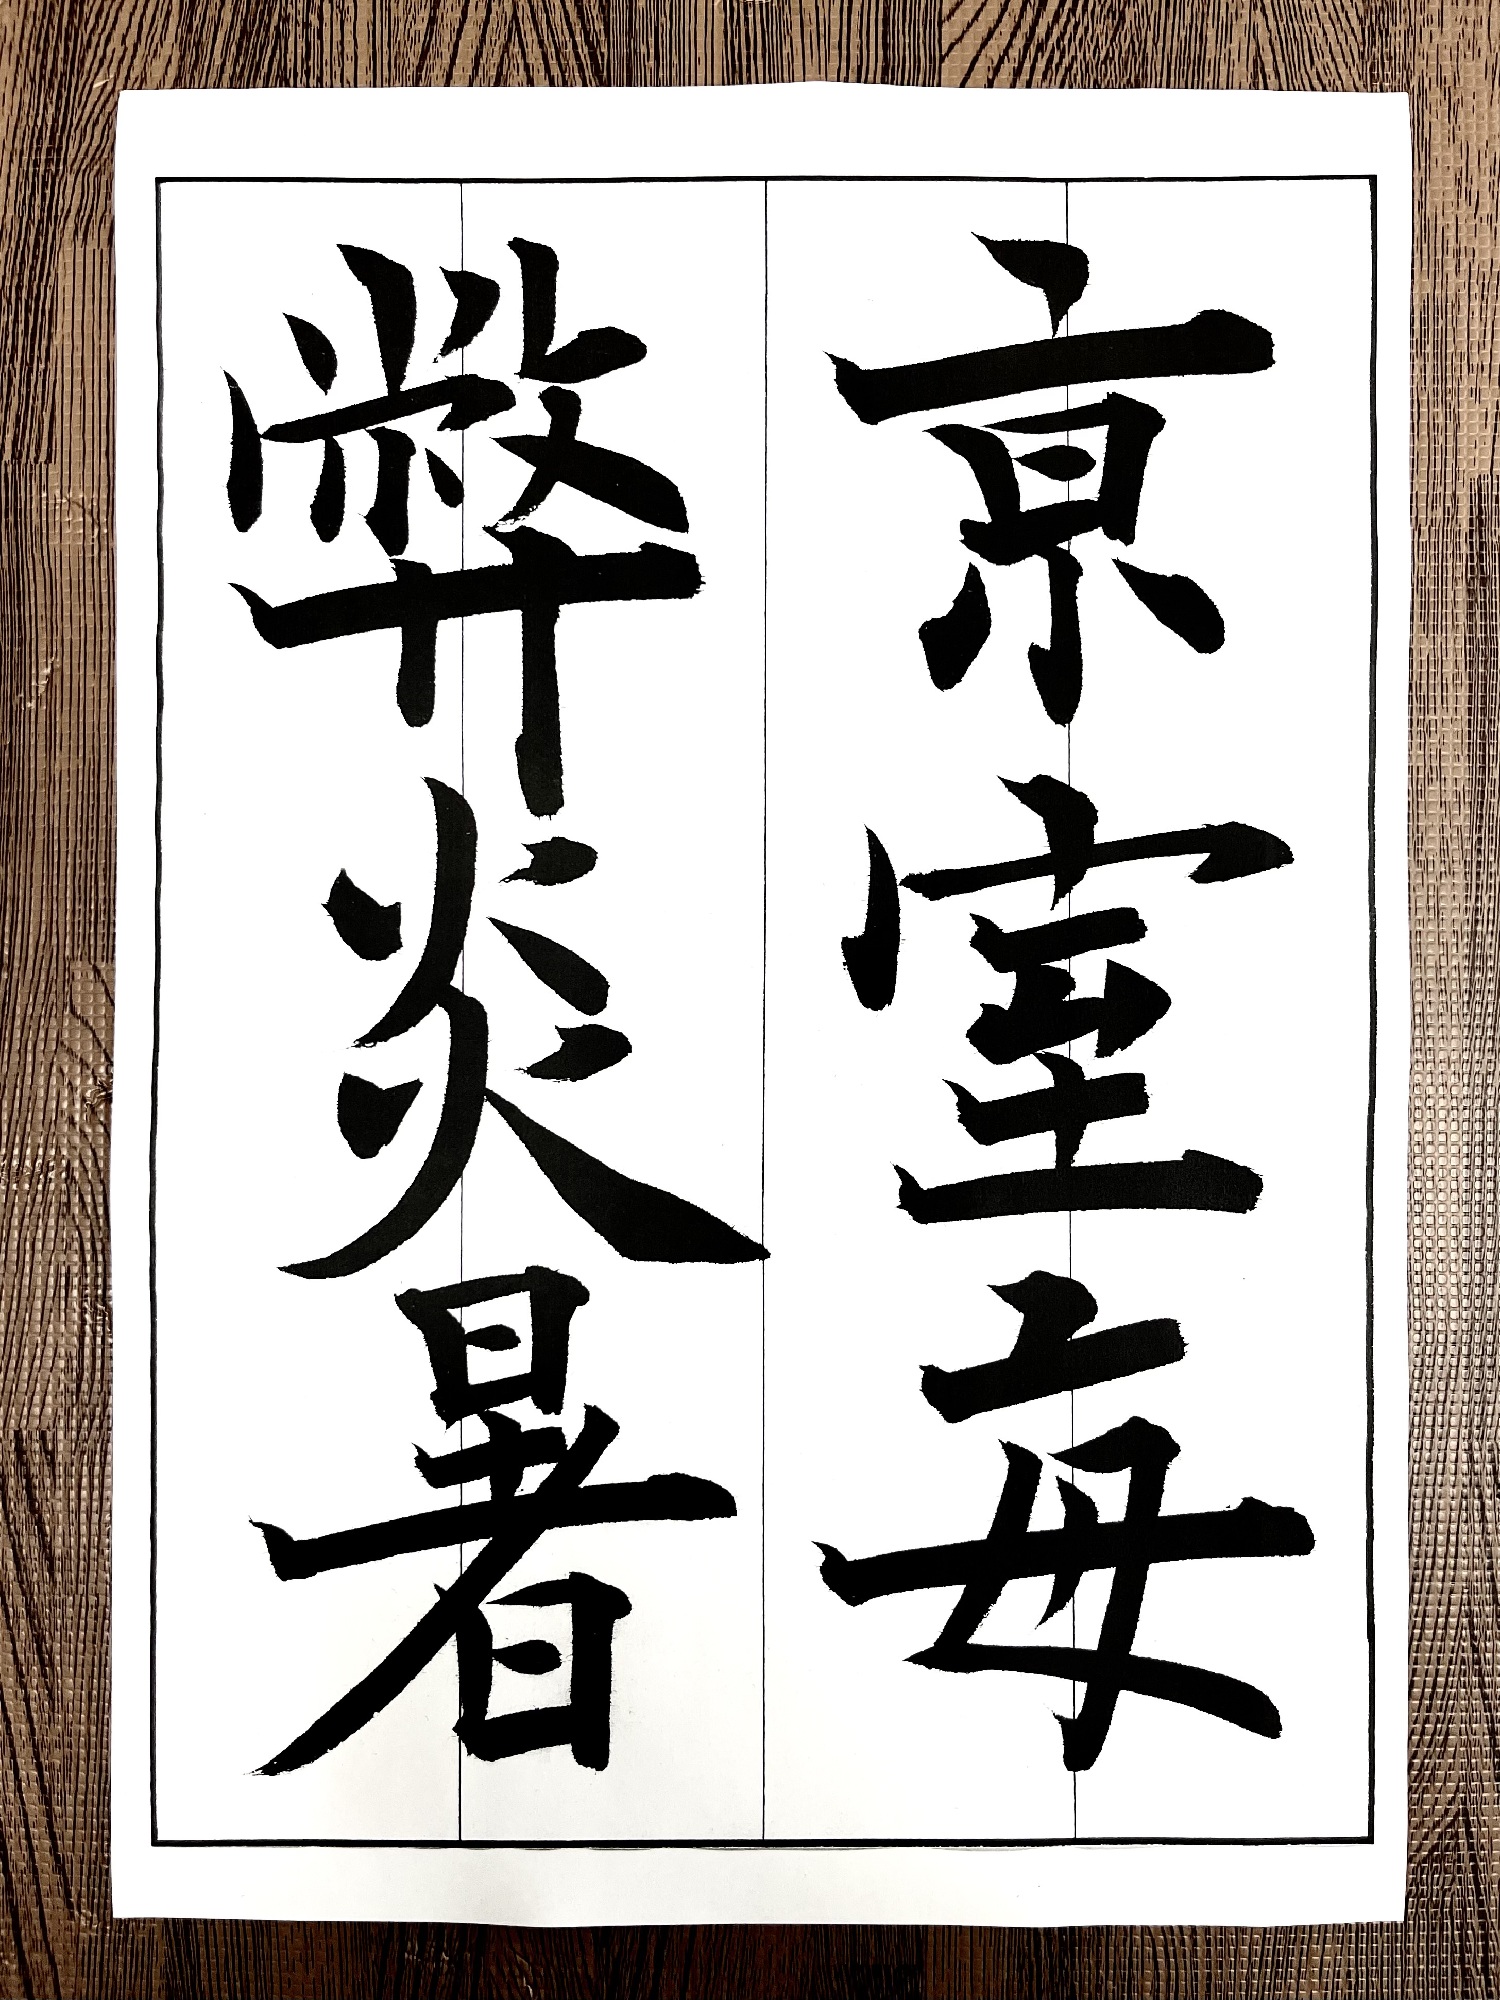 京室毎
弊炎暑